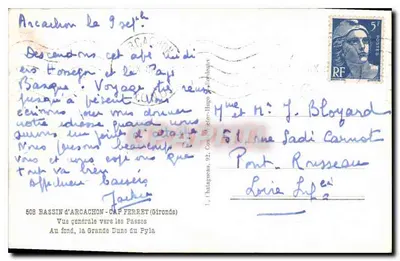 Arcachon le 9 sept
Descendons cet après midi
vers Hossegor et le Pays
Basque. Voyage très réussi
jusqu'à présent. Vous
écrirons pour vous donner
notre adresse quand nous
aurons un point d'attache
Nous pensons beaucoup à
vous et nous espérons que
tout va bien
Affectueux baisers
508 BASSIN d'ARCACHON - CAP FERRET (Gironde)
Vue générale vers les Passes
Au fond, la Grande Dune du Pyla
5F
RF
Mme et M. J. Bloyard
61 rue Sadi Carnot
Pont-Rousseau
Loire Infre